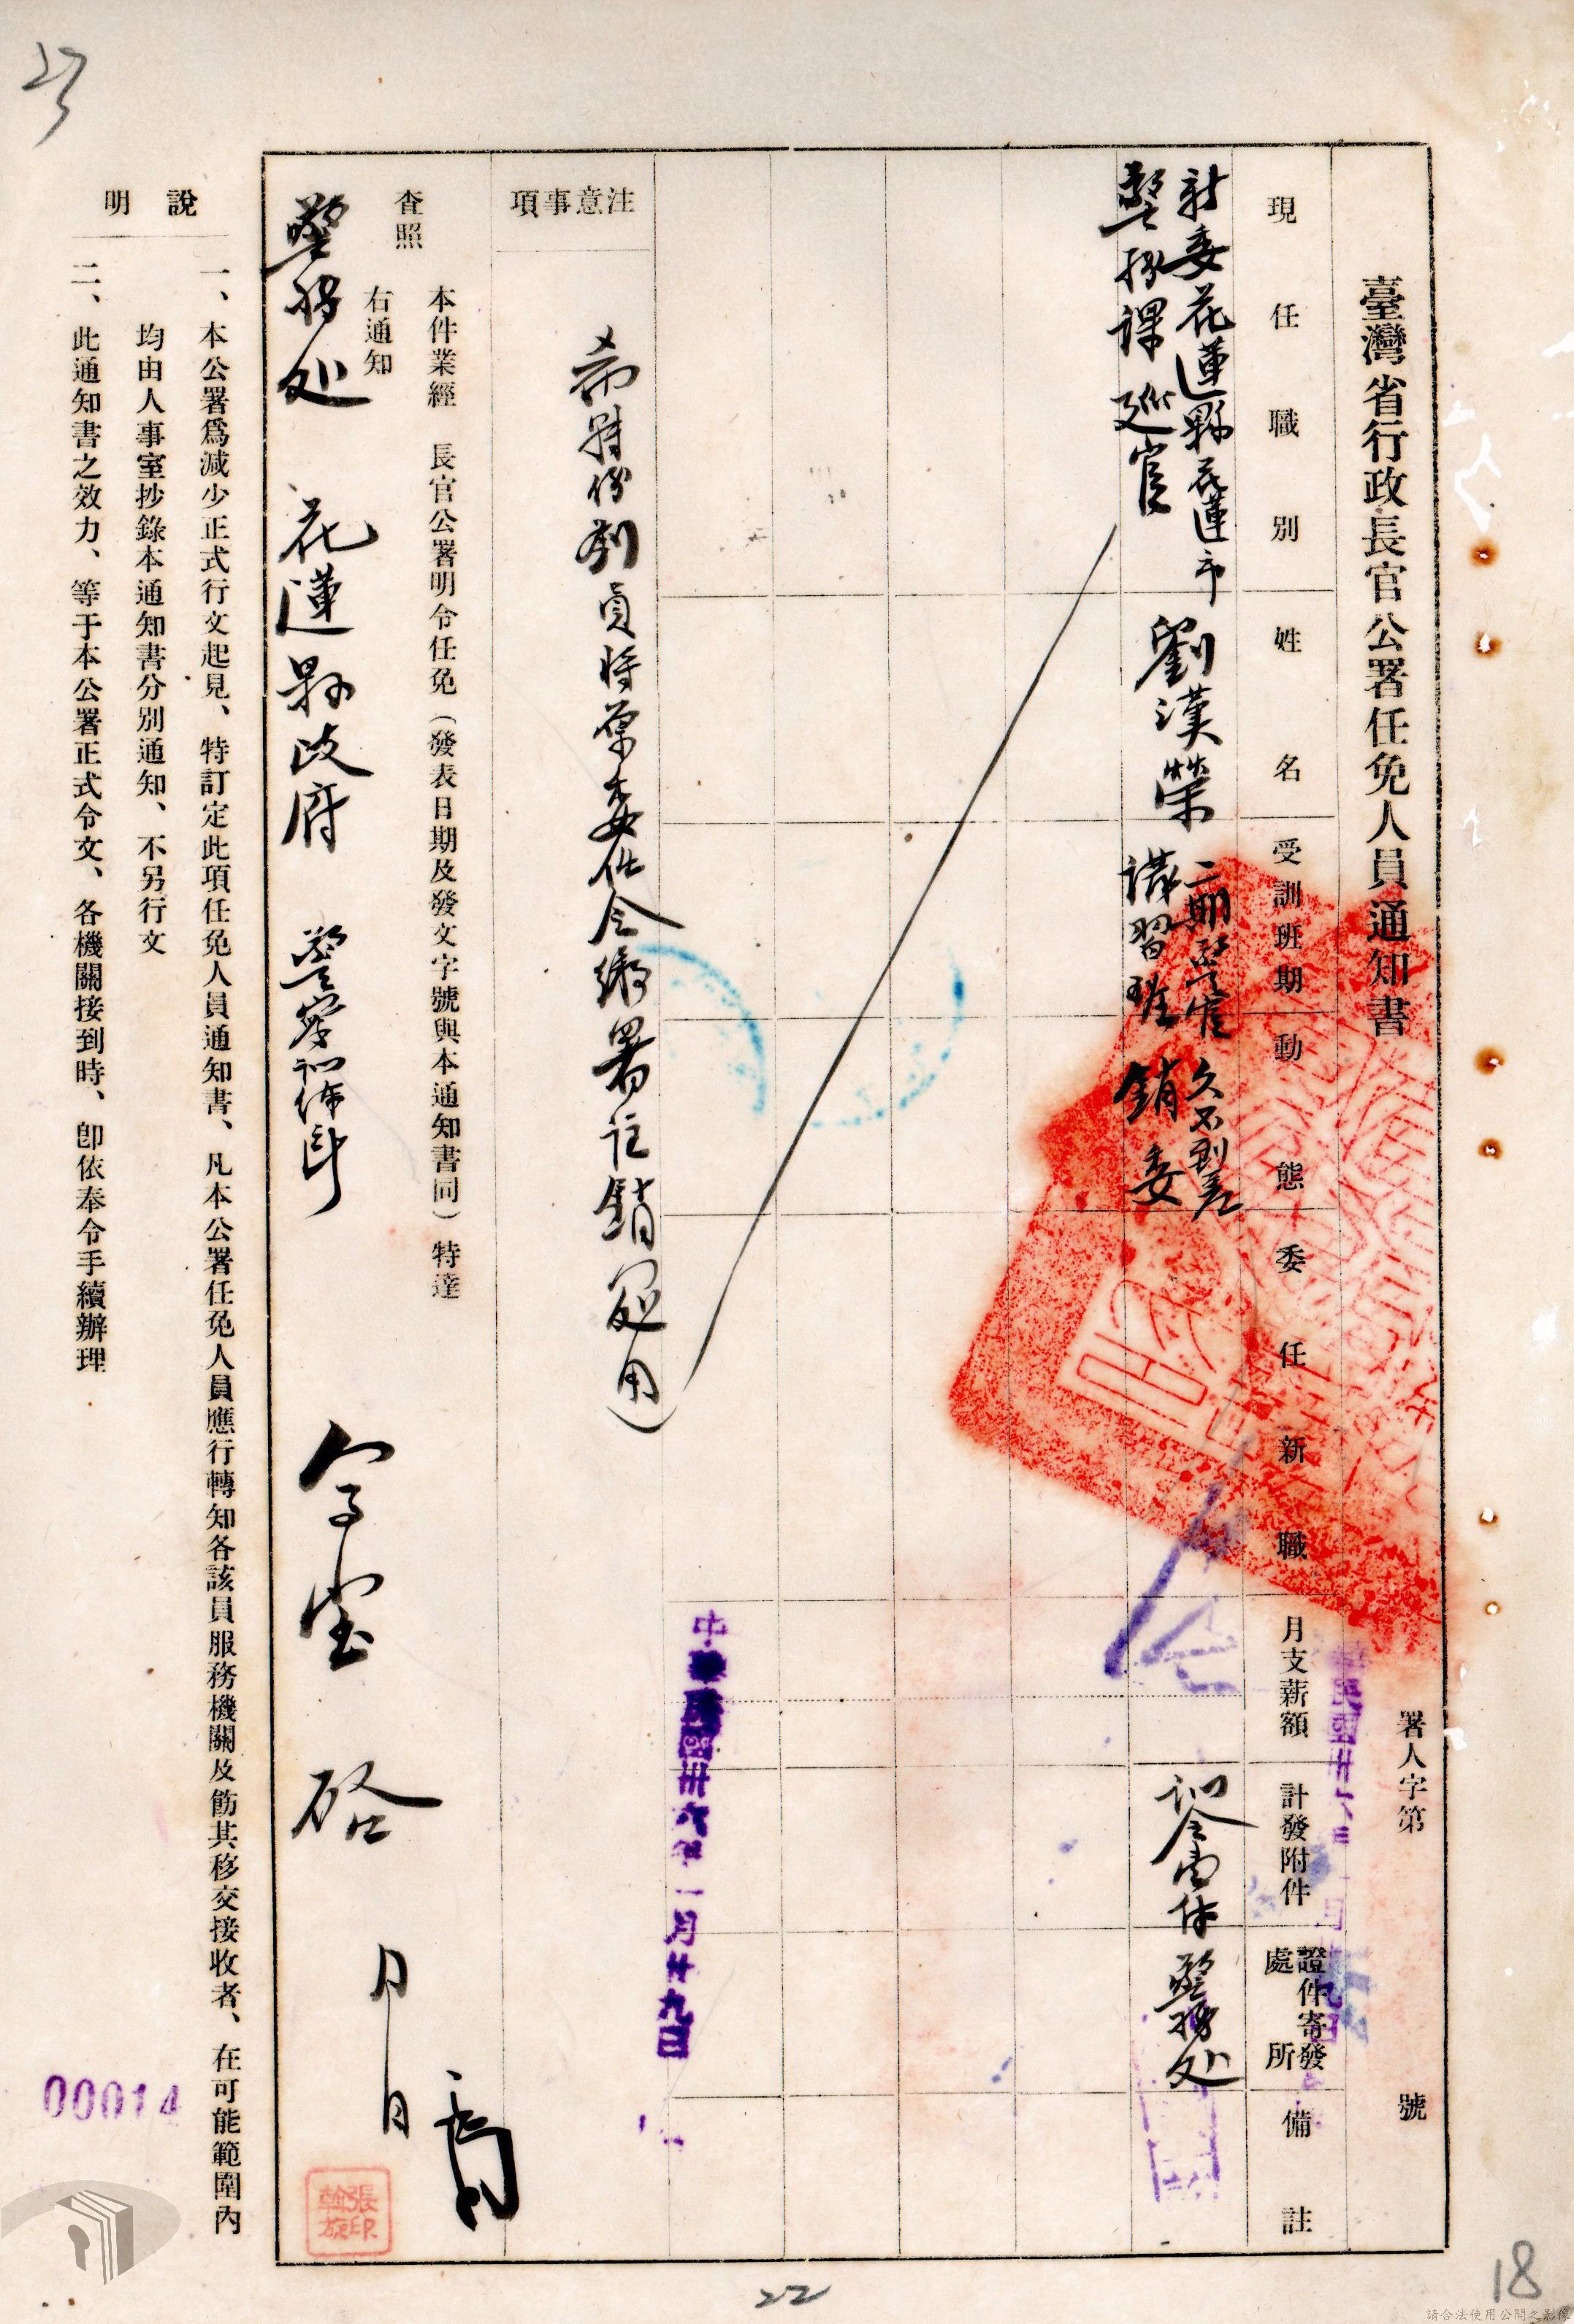 臺灣省行政長官公署任免人員通知書
署人字第　　號
現任職別
姓名
受訓班期
動態
委任新職
月支薪額
計發附件
證件寄發
處所
備註
新委花蓮縣花蓮市
警務課巡官
劉漢榮
二期警官
講習班
久不到差
銷委
訓令壹件
警務处
中華民國卅六年一月廿九日
注意事項
希轉飭劉員將原委任令繳署註銷
本件業經　長官公署明令任免（發表日期及發文字號與本通知書同）特達
查照
右通知
警務处　花蓮縣政府　警察訓練所
啓
月　日
張
印
說明
一、本公署爲減少正式行文起見、特訂定此項任免人員通知書、凡本公署任免人員應行轉知各該員服務機關及飭其移交接收者、在可能範圍內
均由人事室抄錄本通知書分別通知、不另行文
二、此通知書之效力、等于本公署正式令文、各機關接到時、卽依奉令手續辦理
00014
22
18
請合法使用公開之影像